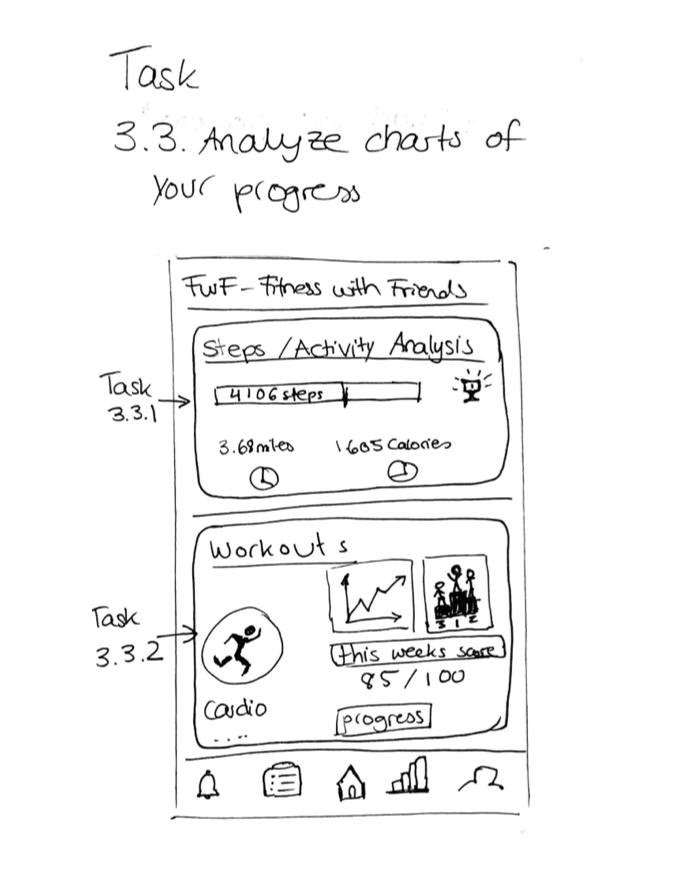 Task
3.3. Analyze charts of
your progress
FWF - Fitness with Friends
Steps / Activity Analysis
4106 steps
Task
3.3.1
3.68 miles 1605 Calories
Workouts
3 1 2
Task
3.3.2
this weeks score
85/100
Cardio
....
progress